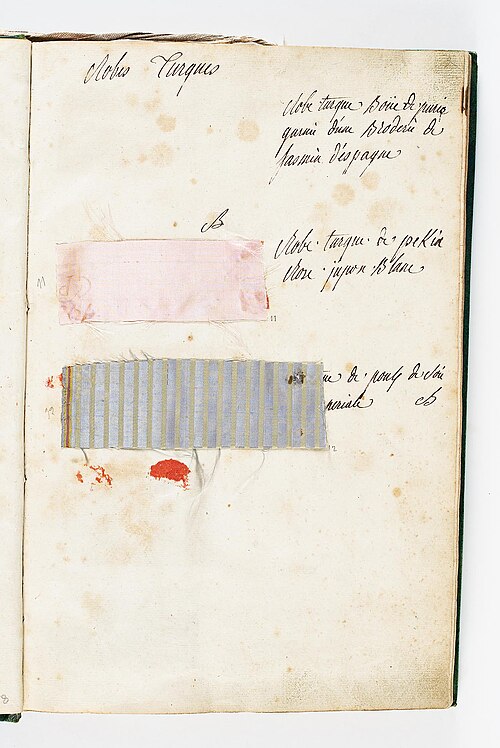 Robes Turques
Robe turque Boüe de paris
garnie d'une Broderie de
Jasmin d'espagne
B
Robe turque de pekin
Rose jupon Blanc
11
11
de pouls de Soie
B
12
8